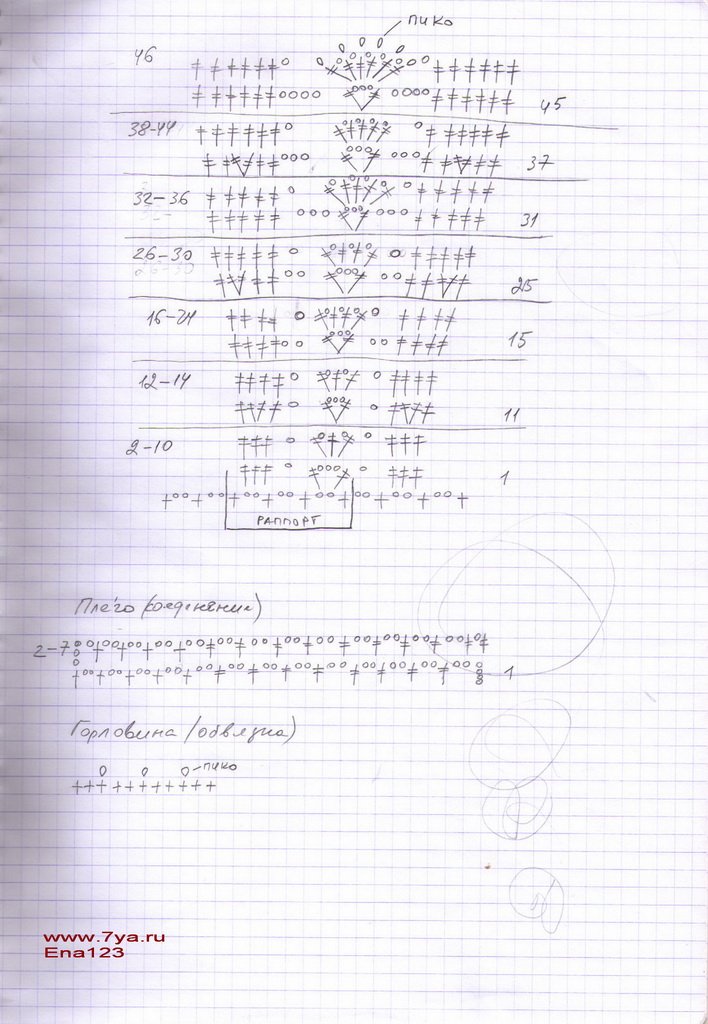 пико
46
45
38-44
37
32-36
31
26-30
25
16-24
15
12-14
11
2-10
1
РАППОРТ
Плечо (соединение)
2-7
1
Горловина (обвязка)
пико
www.7ya.ru
Ena123